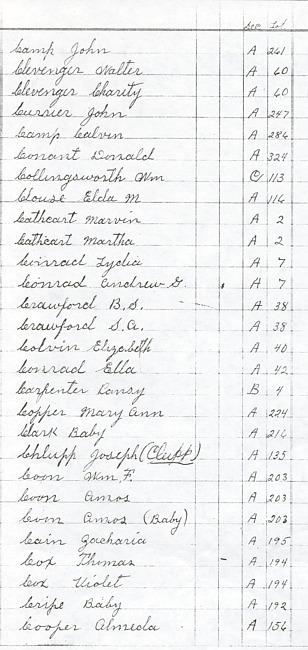 Sec Lot
Camp John A 261
Clevenger Walter A 60
Clevenger Charity A 60
Currier John A 247
Camp Calvin A 286
Conant Donald A 324
Collingsworth Wm C 113
Clouse Elda M A 116
Cathcart Marvin A 2
Cathcart Martha A 2
Conrad Lydia A 7
Conrad Andrew G. A 7
Crawford B.S. A 38
Crawford S.A. A 38
Colvin Elizabeth A 40
Conrad Ella A 42
Carpenter B 4
Copper Mary Ann A 224
Clark Baby A 216
Chlupp Joseph (Clupp) A 135
Coon Wm F. A 203
Coon Amos A 203
Coon Amos (Baby) A 203
Cain Zacharia A 195
Cox Thomas A 194
Cox Violet A 194
Cripe Baby A 192
Cooper Almeda A 156